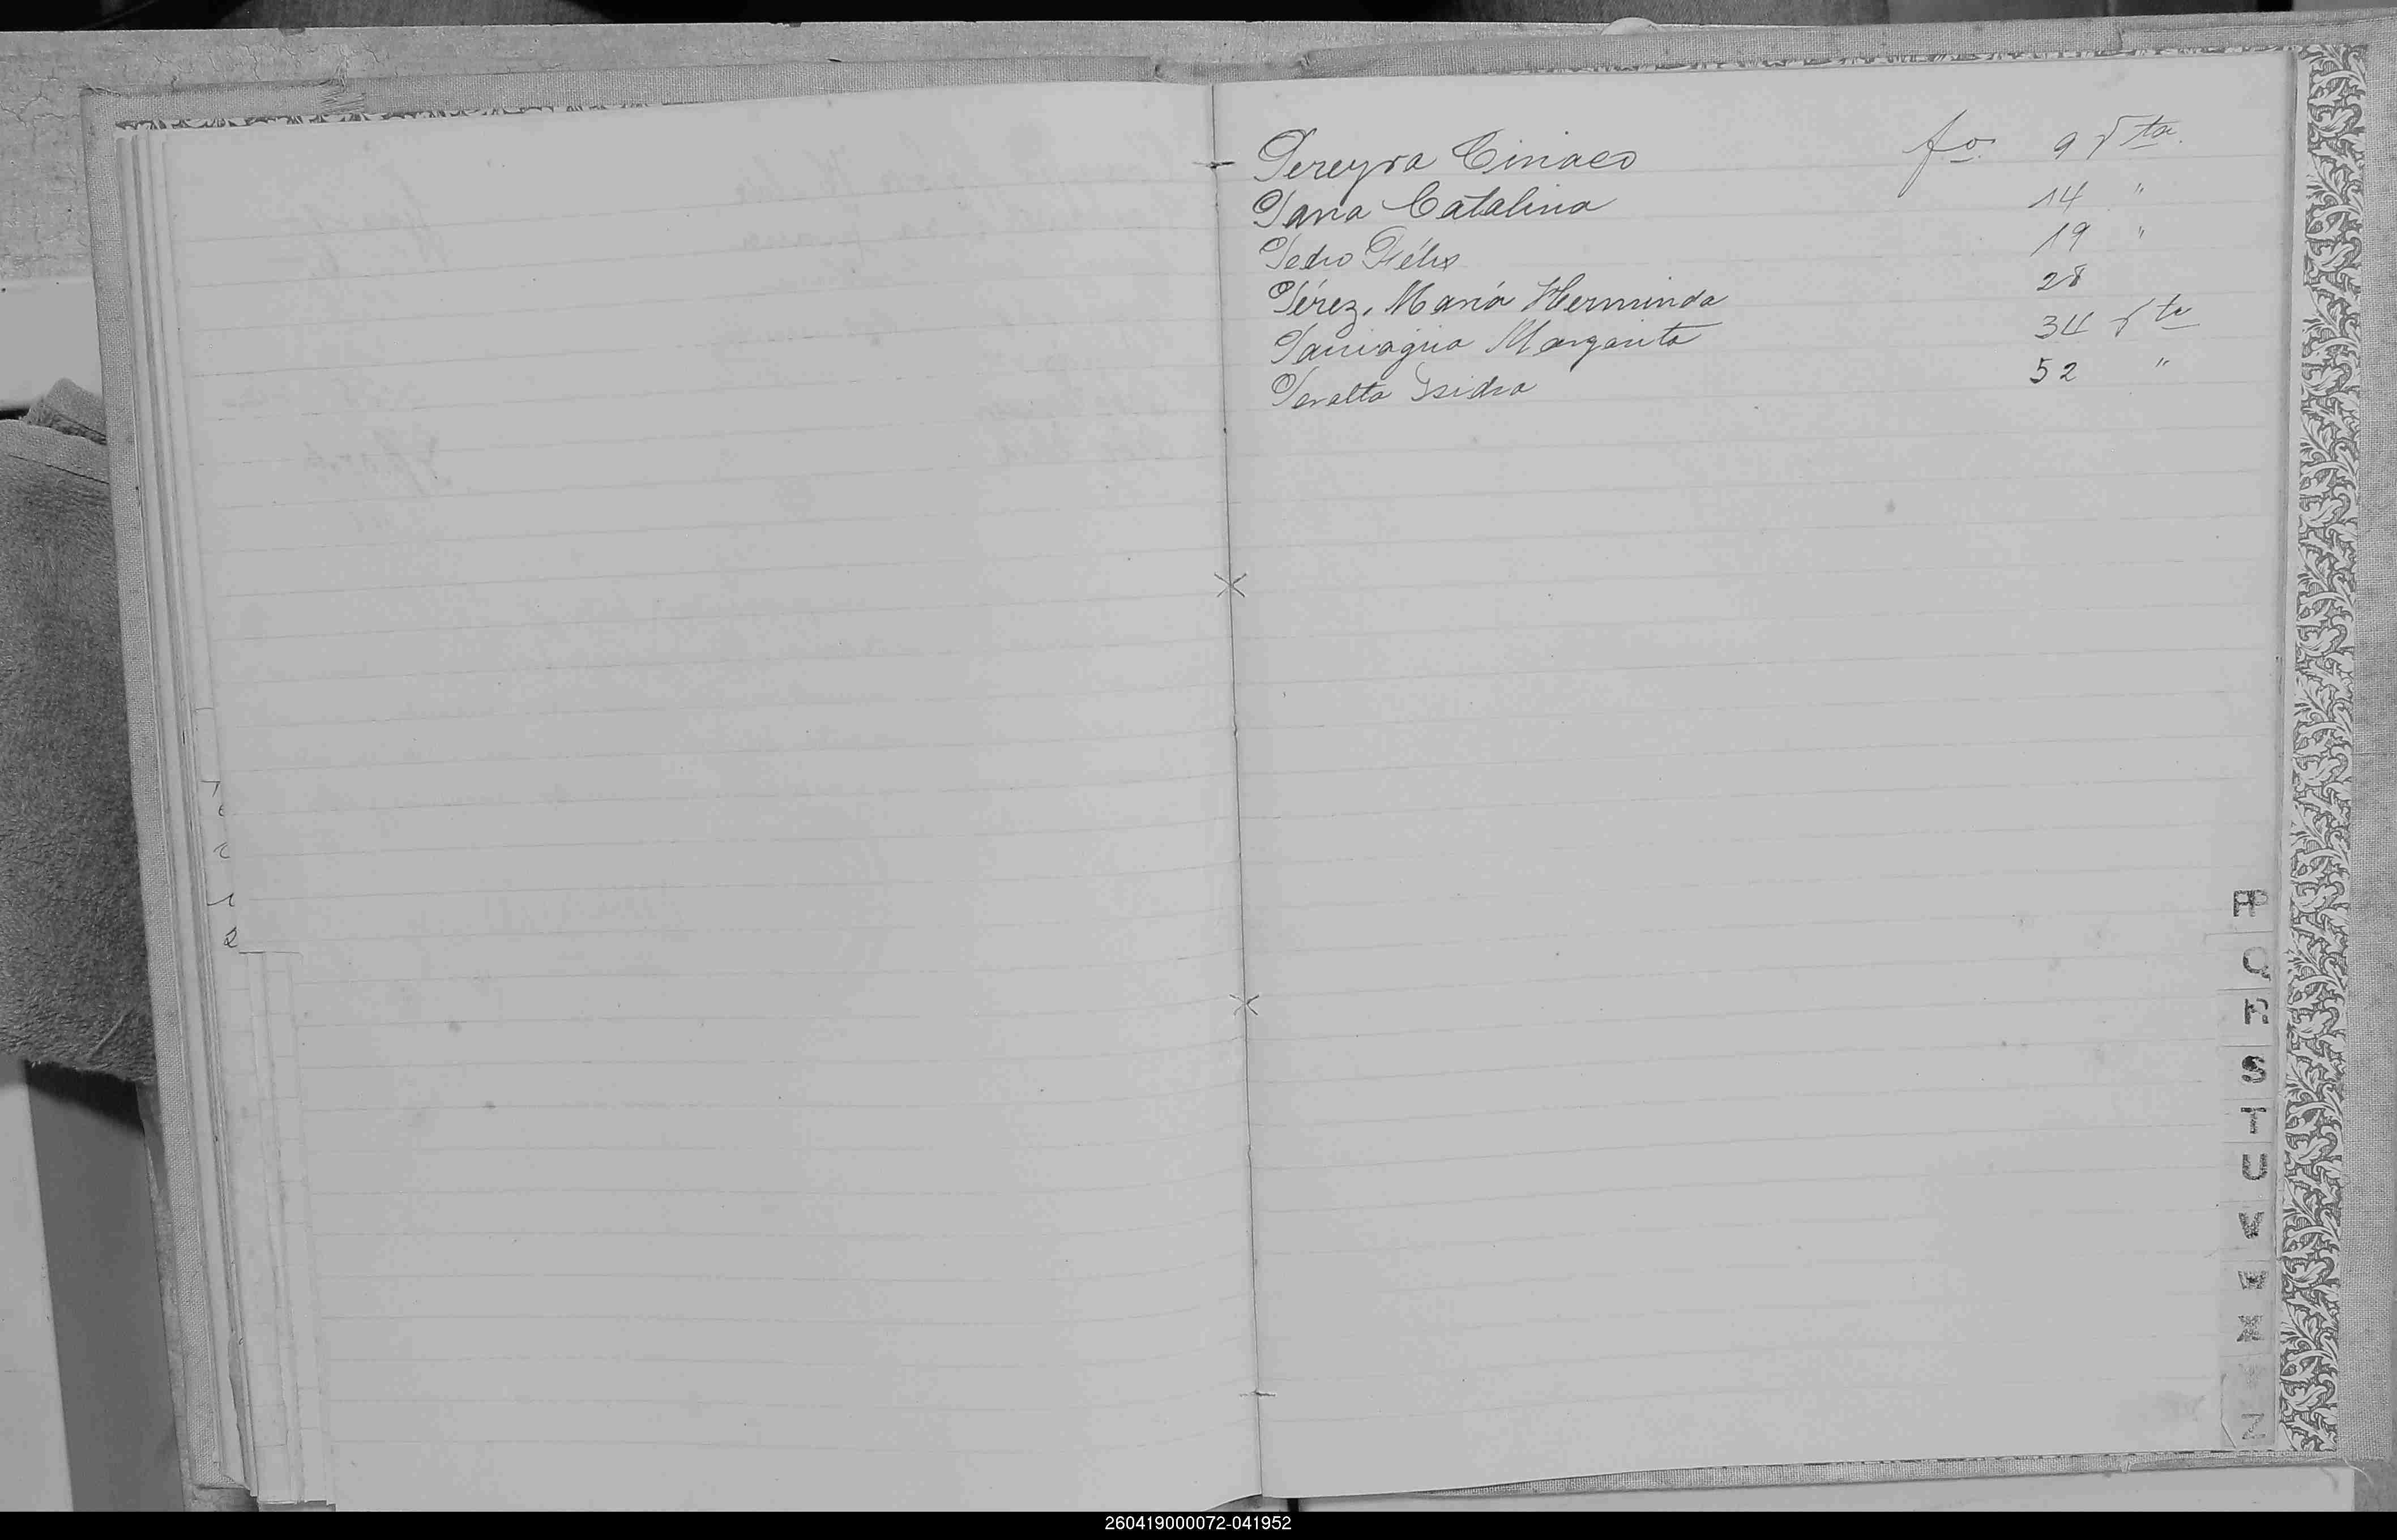 Pereyra Ciriaco fo. 9 vta.
Paria Catalina 14 "
Pedro Félix 19 "
Pérez, María Herminda 28
Paniagua Margarita 34 vta
Peralta Isidra 52 "
P
Q
R
S
T
U
V
W
X
Z
260419000072-041952